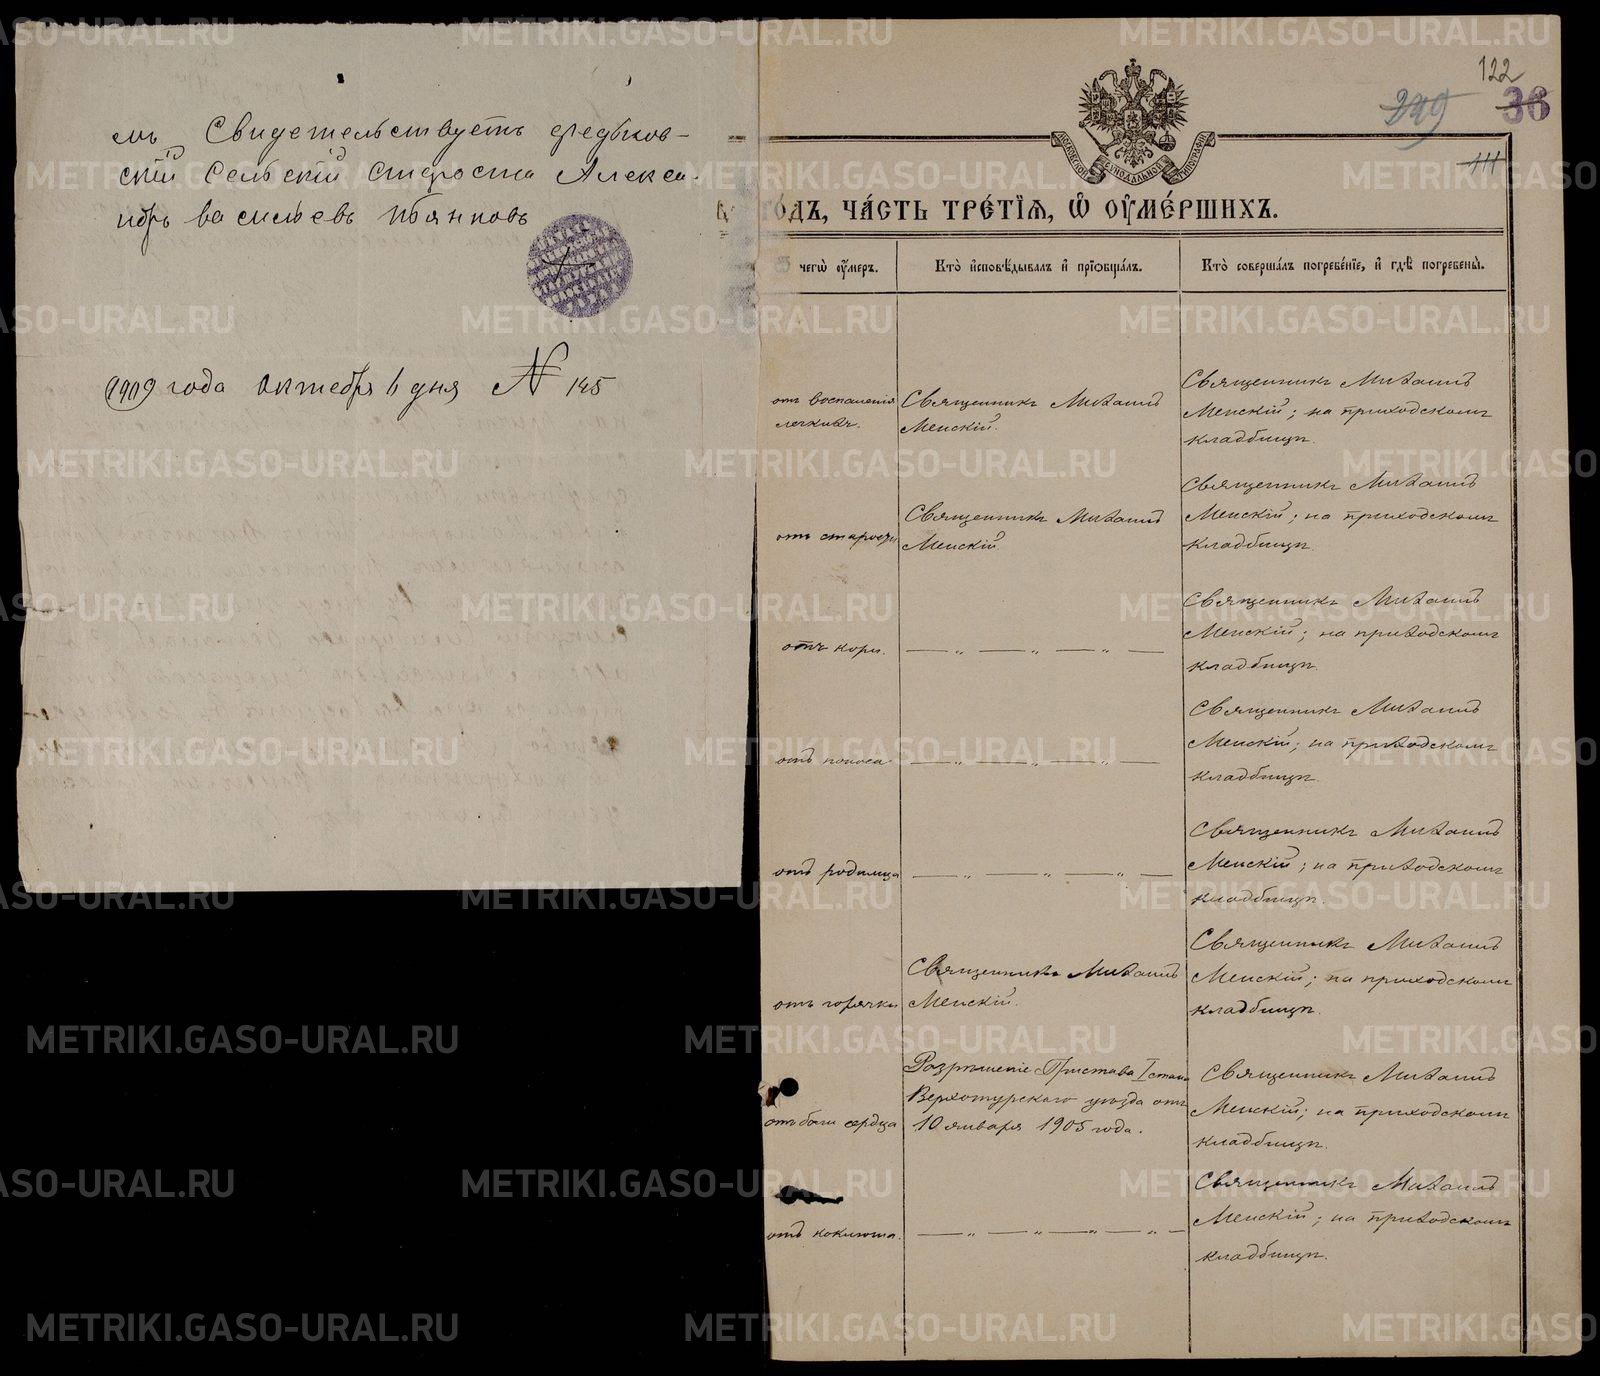 мъ Свидетельствуетъ федьков-
скій Сельскій Староста Алекса-
ндръ васильевъ
1909 года октября 6 дня № 145
122
249 36
111
МОСКОВСКОЙ СѴНОДАЛЬНОЙ ТИПОГРАФІИ
го́дъ, ча́сть тре́тїѧ, ѡ҆ ᲂу҆ме́ршихъ.
ѿ чегѡ̀ ᲂу҆́меръ.
Кто̀ и҆сповѣ́дывалъ и҆ прїѡбща́лъ.
Кто̀ соверша́лъ погребе́нїе, и҆ гдѣ̀ погребены̀.
отъ воспаленія
легкихъ.
Священникъ Михаилъ
Менскій.
Священникъ Михаилъ
Менскій; на приходскомъ
кладбищѣ.
отъ старости
Священникъ Михаилъ
Менскій.
Священникъ Михаилъ
Менскій; на приходскомъ
кладбищѣ.
отъ кори.
— „ — „ — „ —
Священникъ Михаилъ
Менскій; на приходскомъ
кладбищѣ.
отъ поноса
— „ — „ — „ —
Священникъ Михаилъ
Менскій; на приходскомъ
кладбищѣ.
отъ родимца
— „ — „ — „ —
Священникъ Михаилъ
Менскій; на приходскомъ
кладбищѣ.
отъ горячки
Священникъ Михаилъ
Менскій.
Священникъ Михаилъ
Менскій; на приходскомъ
кладбищѣ.
отъ боли сердца
Разрѣшеніе Пристава I стана
Верхотурскаго уѣзда отъ
10 января 1905 года.
Священникъ Михаилъ
Менскій; на приходскомъ
кладбищѣ.
отъ коклюша.
— „ — „ — „ —
Священникъ Михаилъ
Менскій; на приходскомъ
кладбищѣ.
METRIKI.GASO-URAL.RU